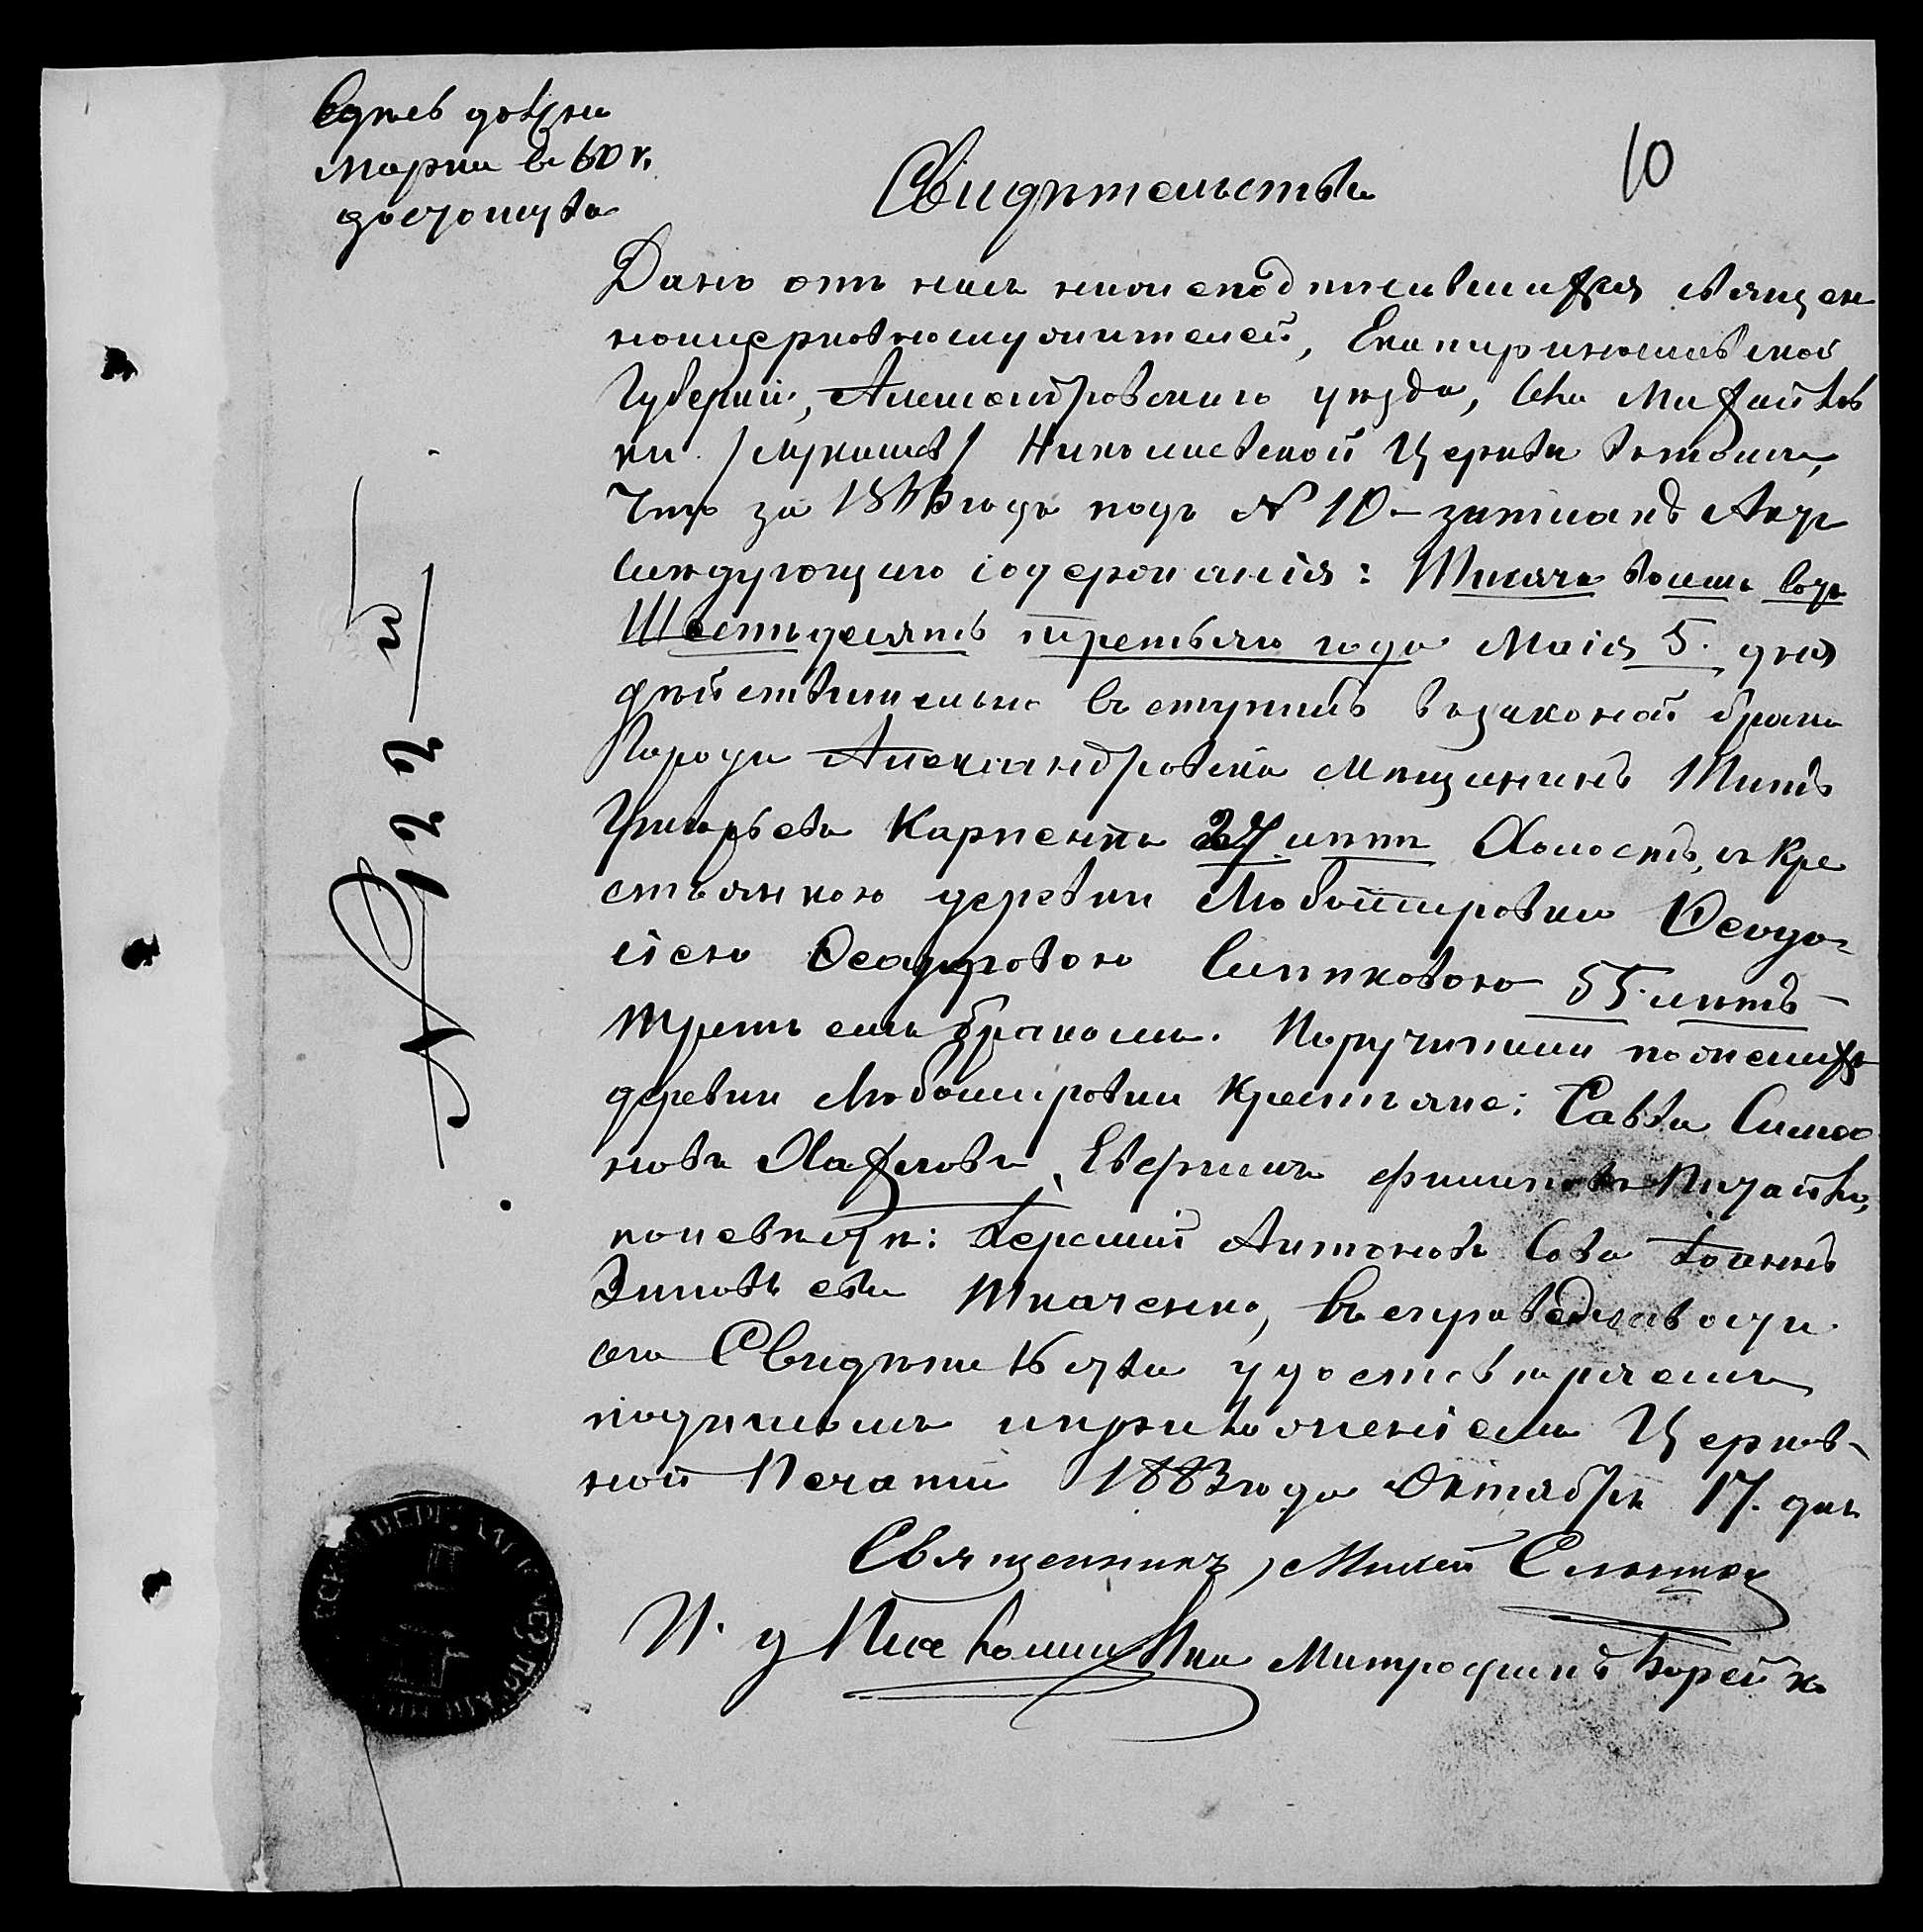 Здѣсь должны
марки в 60 к.
достоинства
10
Свидѣтельство
Дано отъ насъ нижеподписавшихся священ
ноцерковнослужителей, Екатеринославской
Губерніи, Александровскаго уѣзда, села Михайлов
ки /Лукашев/ Николаевской Церкви въ томъ,
Что за 1863 годъ подъ № 10 – записанъ Актъ
слѣдующаго содержанія: Тысяча восемь сотъ
Шестьдесятъ третьяго года Маія 5. дня
дѣйствительно вступилъ в законой бракъ
Города Александровска мѣщанинъ Титъ
Григорьевъ Карпенко 27 лѣтъ Холостъ, съ Кре
стьянкою деревни Любомировки Феодо-
сіею Феодоровою 55. лѣтъ –
третьемъ бракомъ. Поручители по женихѣ
деревни Любомировки Крестьяне: Савва Симео
новъ Филиповъ
по невѣстѣ: Антоновъ Сова Іоаннъ
Зиновьевъ Ткаченко, Въ справедливости
сего Свидѣтельства удостовѣряемъ
подписомъ и приложеніемъ Церков-
ной Печати 1883 года Октября 17. дня
Священникъ,
И. д. Псаломщика Митрофанъ
№ 122